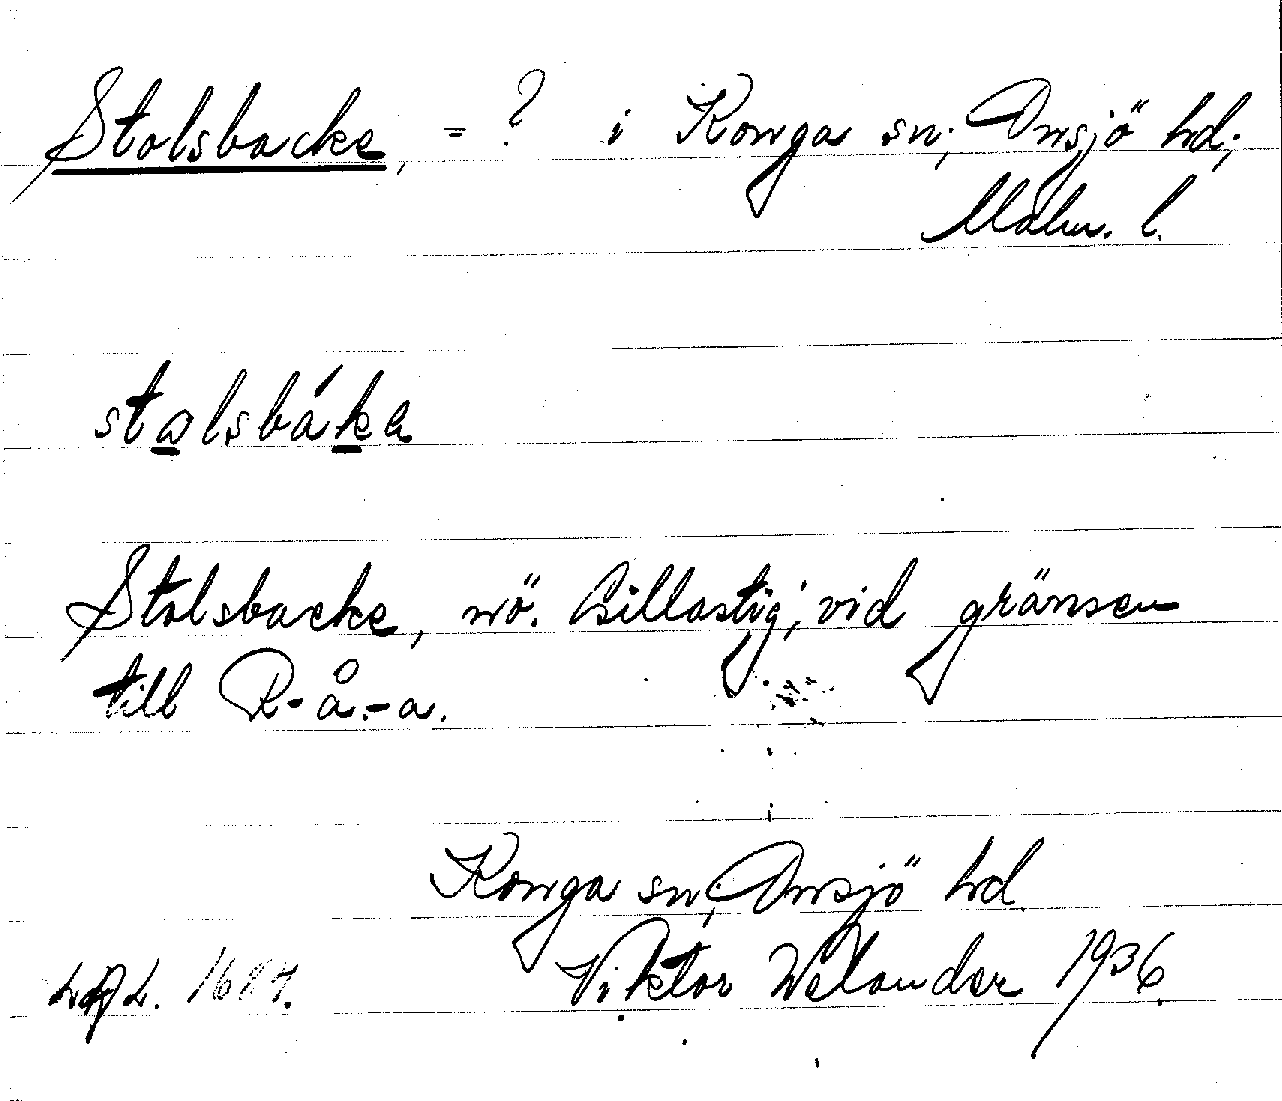 Stolsbacke, = ? i Konga sn; Onsjö hd;
Malm. l.
stalsbáka
Stolsbacke, nö. Billastig; vid gränsen
till R-å.-a.
Konga sn; Onsjö hd
Viktor Welander 1936.